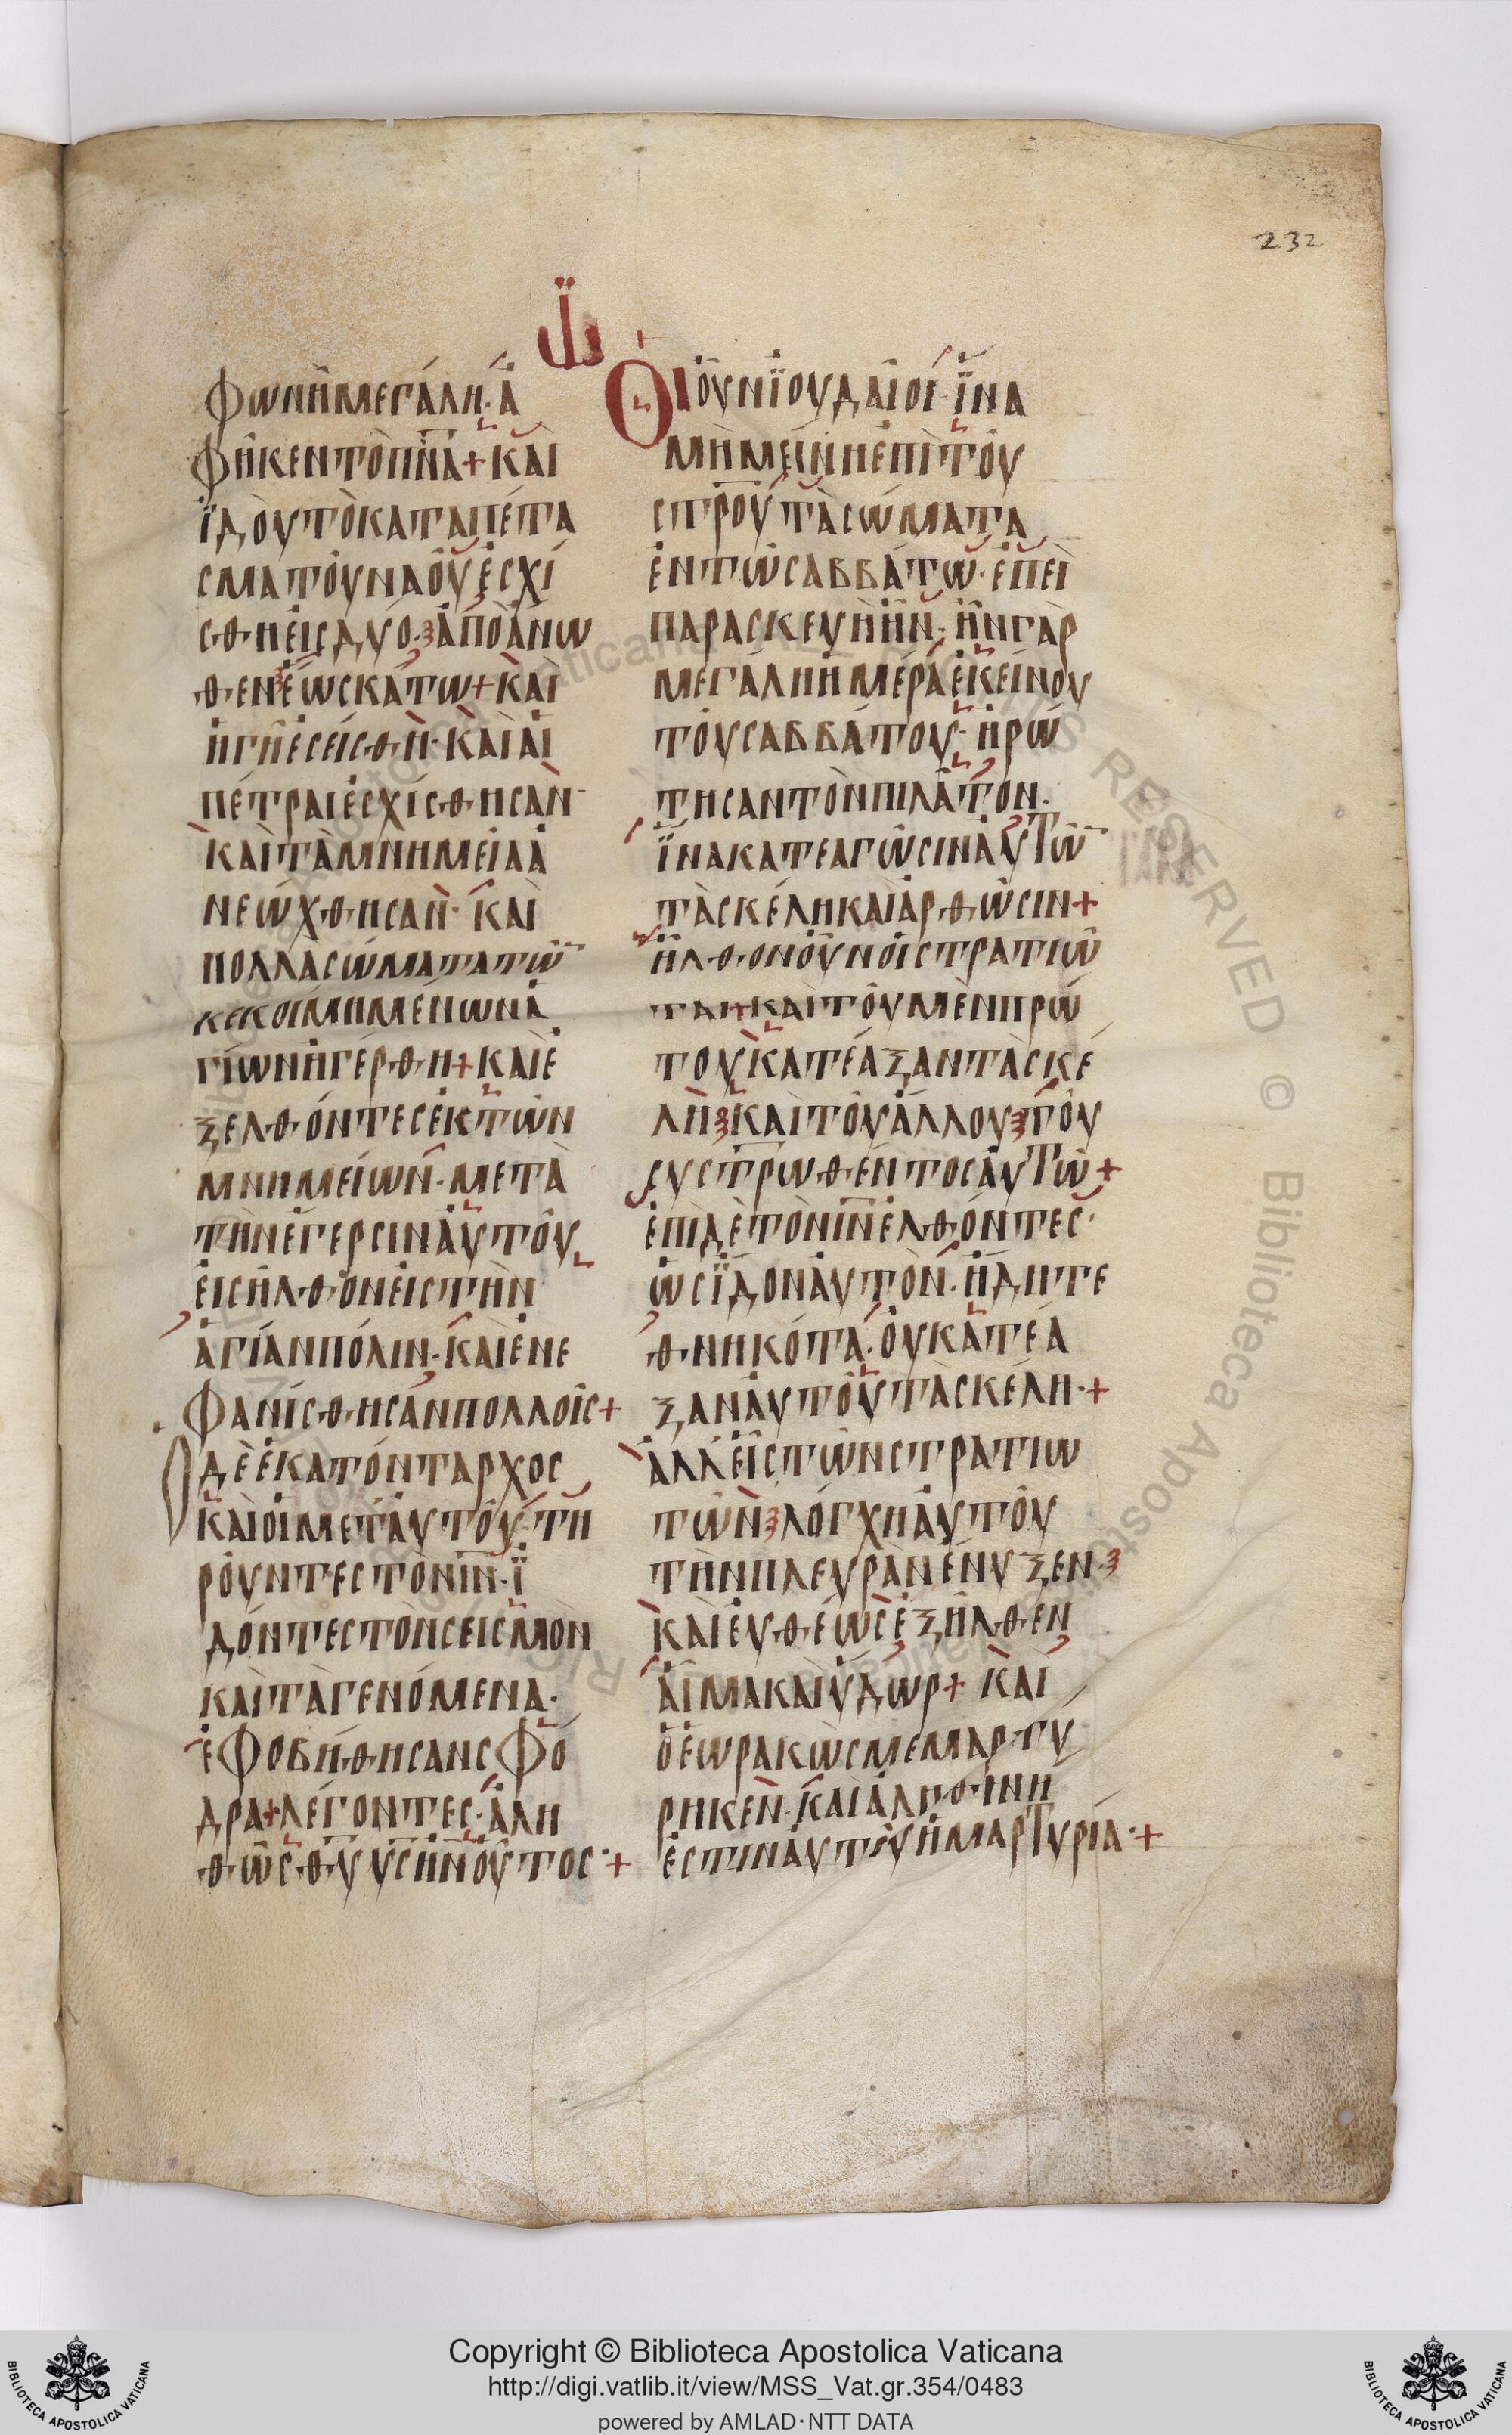 232
ΙѠ
ΦΩΝΗ ΜΕΓΑΛΗ· Ἀ
ΦΗΚΕΝ ΤΟ ΠΝΑ+ ΚΑΙ
ΪΔΟΥ ΤΟ ΚΑΤΑΠΕΤΑ
ΣΜΑ ΤΟΥ ΝΑΟΥ ΕΣΧΙ
ΣΘΗ ΕΙΣ ΔΥΟ· ΑΠΟ ΑΝΩ
ΘΕΝ ΕΩΣ ΚΑΤΩ+ ΚΑΙ
Η ΓΗ ΕΣΕΙΣΘΗ· ΚΑΙ ΑΙ
ΠΕΤΡΑΙ ΕΣΧΙΣΘΗΣΑΝ·
ΚΑΙ ΤΑ ΜΝΗΜΕΙΑ Α
ΝΕΩΧΘΗΣΑΝ· ΚΑΙ
ΠΟΛΛΑ ΣΩΜΑΤΑ ΤΩ̅
ΚΕΚΟΙΜΗΜΕΝΩΝ Α
ΓΙΩΝ ΗΓΕΡΘΗ+ ΚΑΙ Ε
ΞΕΛΘΟΝΤΕΣ ΕΚ ΤΩΝ
ΜΝΗΜΕΙΩΝ· ΜΕΤΑ
ΤΗΝ ΕΓΕΡΣΙΝ ΑΥΤΟΥ
ΕΙΣΗΛΘΟΝ ΕΙΣ ΤΗΝ
ΑΓΙΑΝ ΠΟΛΙΝ· ΚΑΙ ΕΝΕ
ΦΑΝΙΣΘΗΣΑΝ ΠΟΛΛΟΙΣ+
Ο ΔΕ ΕΚΑΤΟΝΤΑΡΧΟΣ
ΚΑΙ ΟΙ ΜΕΤ ΑΥΤΟΥ ΤΗ
ΡΟΥΝΤΕΣ ΤΟΝ ΙΝ̅· Ϊ
ΔΟΝΤΕΣ ΤΟΝ ΣΕΙΣΜΟΝ
ΚΑΙ ΤΑ ΓΕΝΟΜΕΝΑ·
ΕΦΟΒΗΘΗΣΑΝ ΣΦΟ
ΔΡΑ+ ΛΕΓΟΝΤΕΣ· ΑΛΗ
ΘΩΣ ΘΥ̅ ΥΣ̅ ΗΝ ΟΥΤΟΣ·+
ΟΙ ΟΥΝ ΪΟΥΔΑΙΟΙ· ΪΝΑ
ΜΗ ΜΕΙΝΗ ΕΠΙ ΤΟΥ
ΣΤΡΟΥ̅ ΤΑ ΣΩΜΑΤΑ
ΕΝ ΤΩ ΣΑΒΒΑΤΩ· ΕΠΕΙ
ΠΑΡΑΣΚΕΥΗ ΗΝ· ΗΝ ΓΑΡ
ΜΕΓΑΛΗ Η ΜΕΡΑ ΕΚΕΙΝΟΥ
ΤΟΥ ΣΑΒΒΑΤΟΥ· ΗΡΩ
ΤΗΣΑΝ ΤΟΝ ΠΙΛΑΤΟΝ·
ΪΝΑ ΚΑΤΕΑΓΩΣΙΝ ΑΥΤΩ̅
ΤΑ ΣΚΕΛΗ ΚΑΙ ΑΡΘΩΣΙΝ+
ΗΛΘΟΝ ΟΥΝ ΟΙ ΣΤΡΑΤΙΩ
ΤΑΙ+ ΚΑΙ ΤΟΥ ΜΕΝ ΠΡΩ
ΤΟΥ ΚΑΤΕΑΞΑΝ ΤΑ ΣΚΕ
ΛΗ ΚΑΙ ΤΟΥ ΑΛΛΟΥ ΤΟΥ
ΣΥΣΤΡΩΘΕΝΤΟΣ ΑΥΤΩ+
ΕΠΙ ΔΕ ΤΟΝ ΙΝ̅ ΕΛΘΟΝΤΕΣ·
ΩΣ ΪΔΟΝ ΑΥΤΟΝ· ΗΔΗ ΤΕ
ΘΝΗΚΟΤΑ· ΟΥ ΚΑΤΕΑ
ΞΑΝ ΑΥΤΟΥ ΤΑ ΣΚΕΛΗ·+
ΑΛΛ ΕΙΣ ΤΩΝ ΣΤΡΑΤΙΩ
ΤΩΝ ΛΟΓΧΗ ΑΥΤΟΥ
ΤΗΝ ΠΛΕΥΡΑΝ ΕΝΥΞΕΝ·
ΚΑΙ ΕΥΘΕΩΣ ΕΞΗΛΘΕΝ
ΑΙΜΑ ΚΑΙ ΥΔΩΡ+ ΚΑΙ
Ο ΕΩΡΑΚΩΣ ΜΕΜΑΡΤΥ
ΡΗΚΕΝ· ΚΑΙ ΑΛΗΘΙΝΗ
ΕΣΤΙΝ ΑΥΤΟΥ Η ΜΑΡΤΥΡΙΑ·+
Copyright © Biblioteca Apostolica Vaticana
http://digi.vatlib.it/view/MSS_Vat.gr.354/0483
powered by AMLAD·NTT DATA
BIBLIOTECA APOSTOLICA VATICANA
BIBLIOTECA APOSTOLICA VATICANA